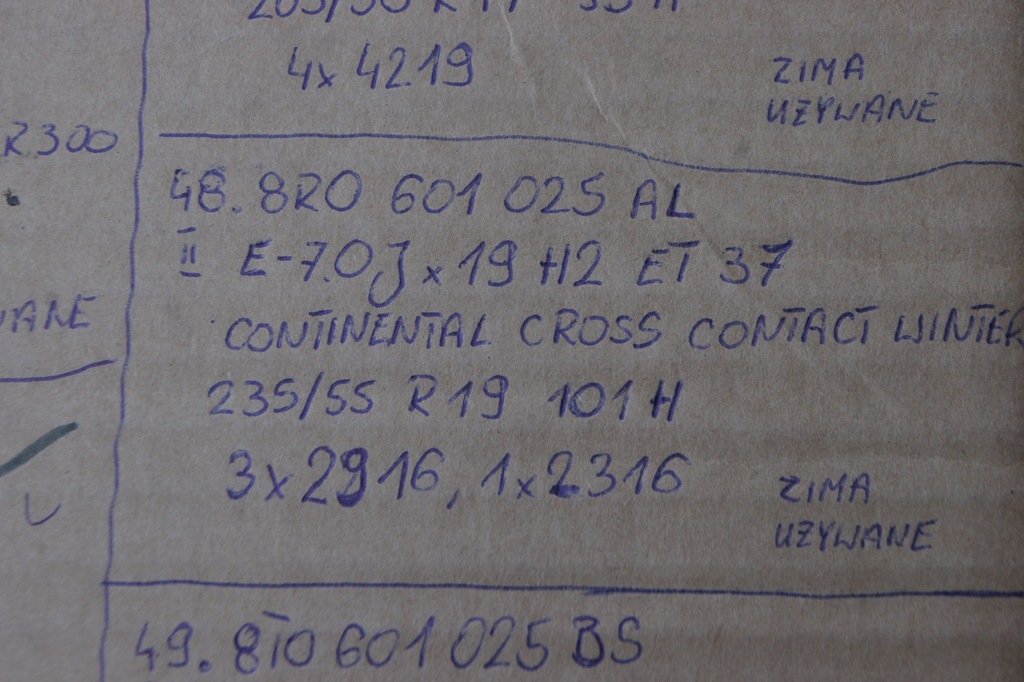 4x 4219
ZIMA
UZYWANE
R300
48. 8R0 601 025 AL
II E-7.0J x 19 H2 ET 37
CONTINENTAL CROSS CONTACT WINTER
235/55 R19 101H
3x2916, 1x2316
ZIMA
UZYWANE
49. 8T0 601 025 BS